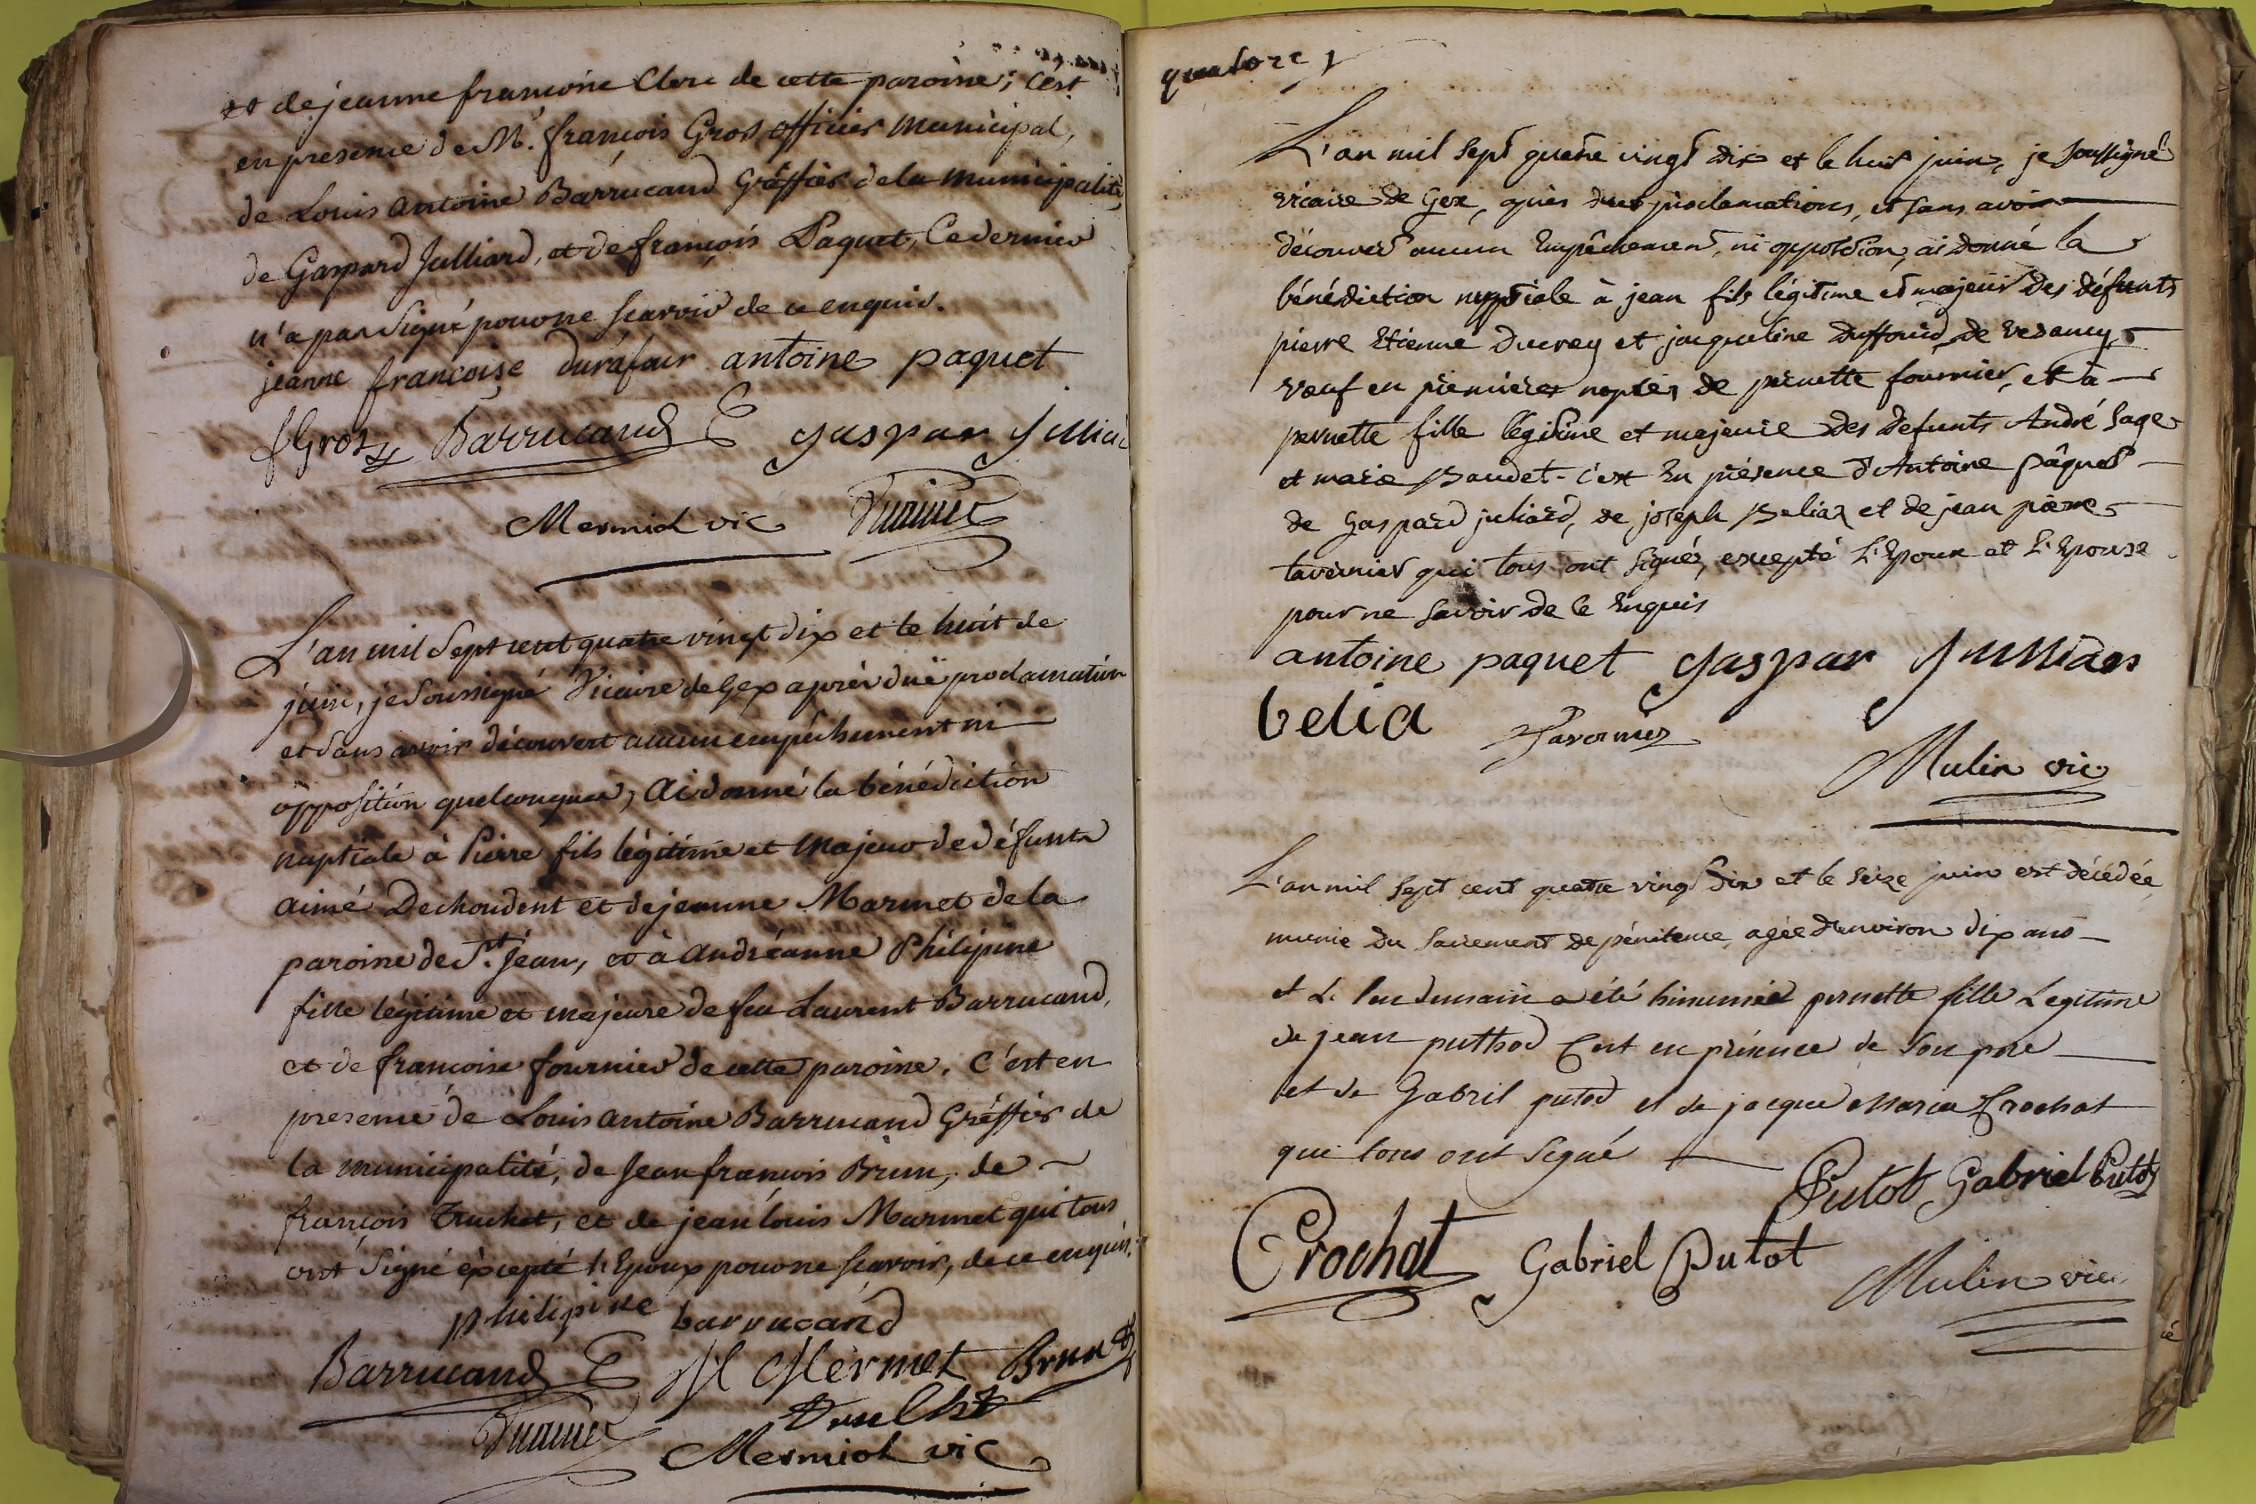 et de jeanne francoise Clerc de cette paroisse; C'est
en presence de Mr. françois Gros officier Municipal,
de Louis antoine Barrucand Gréffier de la Municipalité,
de Gaspard Julliard, et de françois Paquet, Ce dernier
n'a pas signé pour ne scavoir de ce enquis.
jeanne françoise durafour antoine paquet
f Gros Barrucand G gaspar Julliar
Mermiol vic
L'an mil sept cent quatre vingt dix et le huit de
juin, je soussigné Vicaire de Gex après duë proclamation
et sans avoir découvert aucun empêchement ni
opposition quelconque, ai donné la bénédiction
nuptiale à Pierre fils légitime et majeur de défunts
aimé Dechoudent et de jeanne Marmet de la
paroisse de St. Jean, et à andréanne Philipine
fille légitime et majeure de feu Laurent Barrucand,
et de francoise fournier de cette paroisse. C'est en
presence de Louis antoine Barrucand Gréffier de
la municipalité, de Jean francois Brun, de
françois Truchet, et de jean louis Marmet qui tous
ont signé éxcepté l'Epoux pour ne scavoir, de ce enquis.
philipine barrucand
Barrucand G JL Mermet Brun
Truchet
Mermiol vic
quatorze
L'an mil sept quatre vingt dix et le huit juin, je soussigné
vicaire de Gex, après dues proclamations, et sans avoir
découvert aucun Empêchement, ni opposition, ai donné la
bénédiction nuptiale à jean fils légitime et majeur des défunts
pierre Etienne Ducrey et jacqueline Duffourd de vesancy
veuf en premieres nopces de pernette fournier, et à
pernette fille légitime et majeure des defunts André sage
et marie Baudet - c'est En présence d'Antoine pâquet
de Gaspard juliard, de joseph Beliaz et de jean pierre
tavernier qui tous ont signés, excepté L'Epoux et L'Epouse
pour ne savoir de ce Enquis
antoine paquet gaspar Julliard
belia Tavernier
Mulin vic
L'an mil sept cent quatre vingt dix et le seize juin est décédée
munie du sacrement de pénitence, agée d'environ dix ans
et Le lendemain a été hinumée pernette fille Legitime
de jean puthod C'est en présence de son pere
et de Gabril putod et de jacque Maria Crochat
qui tous ont signé
Putot Gabriel Putot
Crochat Gabriel Putot
Mulin vic